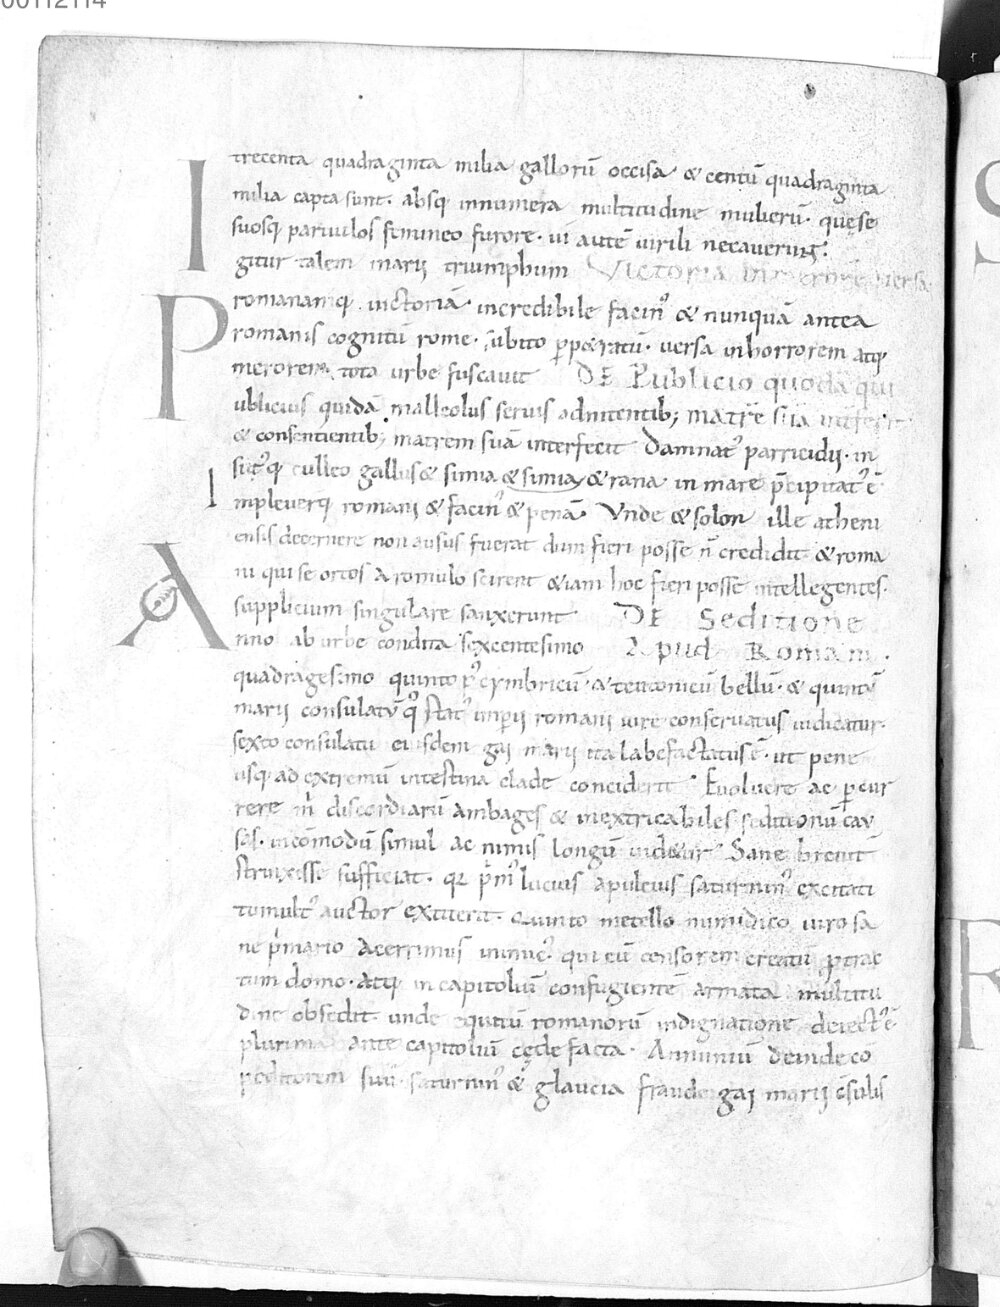 00112114
trecenta quadraginta milia gallorū occisa & centū quadraginta
milia capta sunt · absq innumera multitudine mulierū · quęse
suosq paruulos femineo furore · ui autē uirili necauerunt ·
Igitur talem marii triumphum Victoria in
romanamq uictoriā incredibile facin' & nunquā antea
romanis cognitū rome · pperatū · uersa inhorrorem atq
merorem tota urbe fuscauit DE Publicio quodā qui
Publicius quidā malleolus seruis adnitentib; matrē suā interfecit
& consentientib; matrem suā interfecit Damnat' parricidii · in
sut'q culleo gallus & simia & simia & rana in mare pcipitat' ē
Impleuerq romani & facin' & penā Vnde & solon ille atheni
ensis decernere non ausus fuerat dum fieri posse n credidit & roma
ni qui se ortos a romulo scirent &iam hoc fieri posse intellegentes ·
supplicium singulare sanxerunt DE Seditione
Anno ab urbe condita sexcentesimo Apud Romam ·
quadragesimo quinto p' cymbricū & teutonicū bellū · & quintū
marii consulatū q' stat' imperii romani iure conseruatus iudicatur ·
sexto consulatu eiusdem gaii marii ita labefactatus ē · ut pene
usq ad extremū intestina clade conciderit Euoluere ac pcur
rere m discordiarū ambages & inextricabiles seditionū cau
sas · incōmodū simul ac nimis longū uidetur Sane breuit
strinxisse sufficiat · q pm' lucius apuleius saturnin' excitati
tumult' auctor extiterit · Quinto metello numidico uiro sa
ne pmario acerrimus inimic' qui eū censorem creatū ptrac
tum domo · atq in capitoliū confugientē armata multitu
dine obsedit unde equitū romanorū indignatione deiect' ē
plurima ante capitoliū cęde facta · Annuniū deinde cō
petitorem suū · saturnin' & glaucia fraude gaii marii csulis